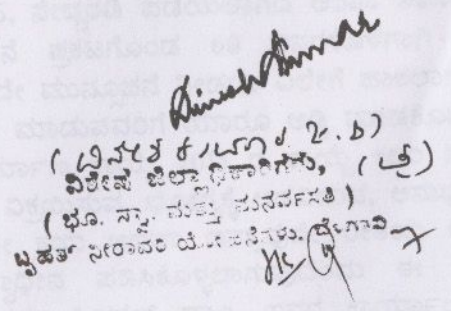 Dinesh Kumar
(ದಿನೇಶ ಕುಮಾರ
ವಿಶೇಷ ಜಿಲ್ಲಾಧಿಕಾರಿಗಳು, (ಪ್ರ)
(ಭೂ. ಸ್ವಾ. ಮತ್ತು ಪುನರ್ವಸತಿ
ಬೃಹತ್ ನೀರಾವರಿ ಯೋಜನೆಗಳು. ಬೆಳಗಾವಿ